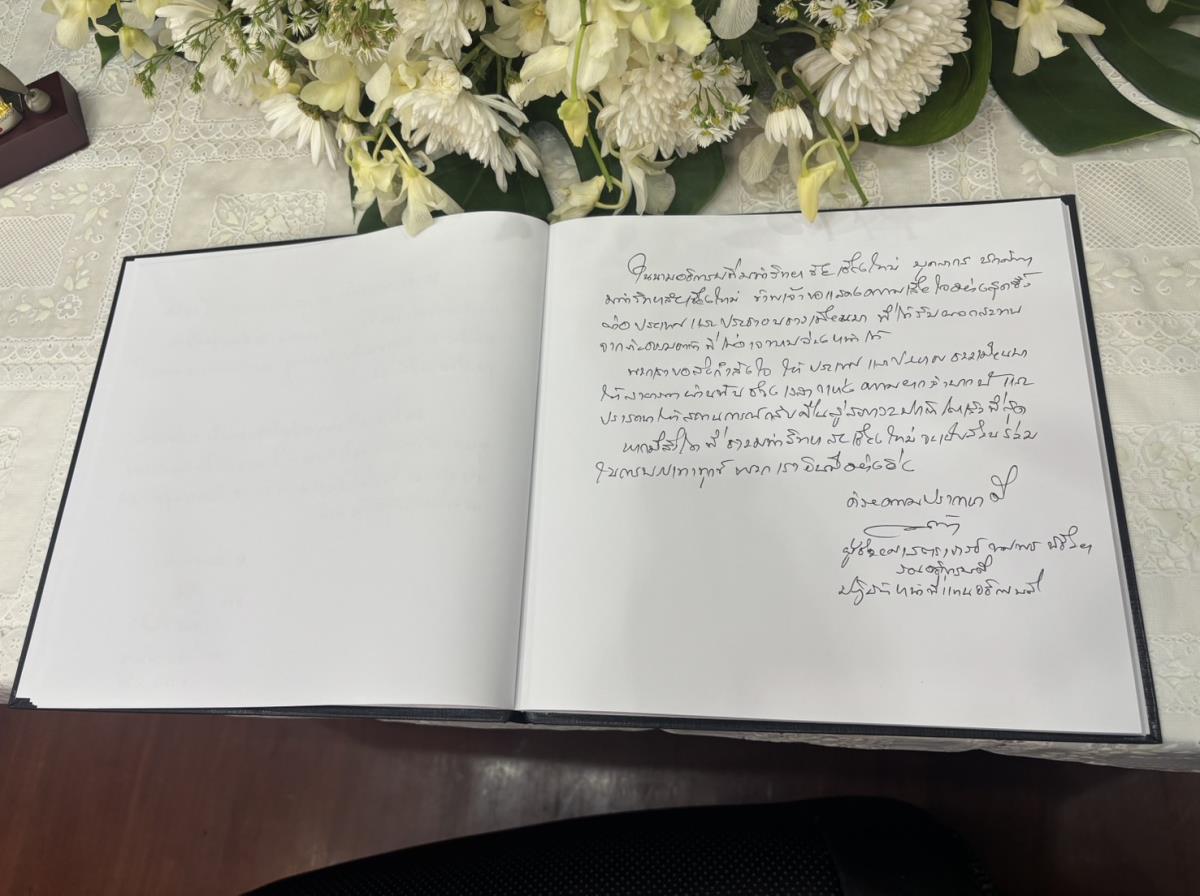 ในนามอธิการบดีมหาวิทยาลัยเชียงใหม่ บุคลากร นักศึกษา
มหาวิทยาลัยเชียงใหม่ ข้าพเจ้าขอแสดงความเสียใจอย่างสุดซึ้ง
ต่อประเทศและประชาชนชาวเมียนมา ที่ได้รับผลกระทบ
จากภัยธรรมชาติที่ไม่อาจหลีกเลี่ยงได้
พวกเราขอส่งกำลังใจ ให้ประเทศ และประชาชน ชาวเมียนมา
ให้สามารถผ่านพ้น ช่วงเวลาแห่งความยากลำบากนี้ และ
ปรารถนาให้สถานการณ์กลับคืนสู่สภาวะปกติโดยเร็วที่สุด
หากมีสิ่งใดที่ชาวมหาวิทยาลัยเชียงใหม่ จะเป็นส่วนร่วม
ในการบรรเทาทุกข์ พวกเรายินดีอย่างยิ่ง
ด้วยความปรารถนาดี
ผู้ช่วยศาสตราจารย์
รองอธิการบดี
ปฏิบัติหน้าที่แทนอธิการบดี